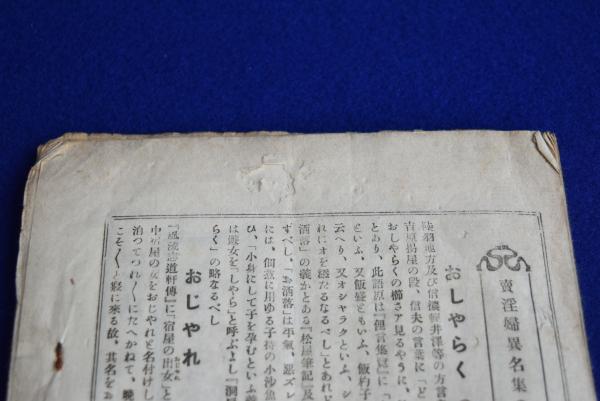 賣淫婦異名集
おしやらく
陸羽地方及び信濃輕井澤等の方言
吉原揚屋の段、信夫の言葉に「ど
おしやらくの櫛さア見るやうに、
とあり、此語原は『俚言集覽』に「
といふ、又飯盛ともいふ、飯杓子
云へり、又オシャラクといふ、シ
れにオを綴たるなるべし」とあれど
酒落」の義かとある『松屋筆記』及
ずべし、「お洒落」は平氣、惡ズレ
には、佃煮に用ゆる子持の小沙魚
ひ、「小身にして子を孕むといふ義
は遊女を「しやら」と呼ぶよし『洞房
らく」の略なるべし
おじやれ
『風流志道軒傳』に「宿屋の出女」と
おじやれ
中宿屋の女をおじやれと名付けし
泊つてつれ〲にたへかねて、晩
こそ〱と寢に來る故、其名をお